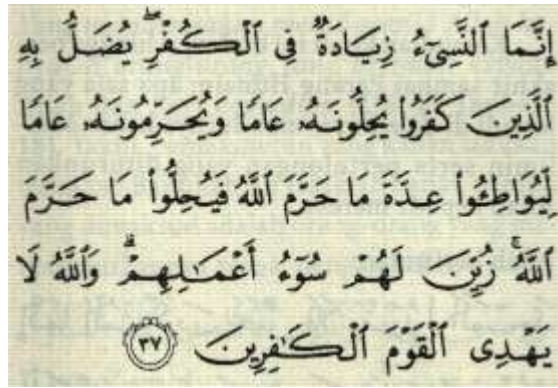 إِنَّمَا ٱلنَّسِىٓءُ زِيَادَةٌ فِى ٱلْكُفْرِ ۖ يُضَلُّ بِهِ
ٱلَّذِينَ كَفَرُوا۟ يُحِلُّونَهُۥ عَامًا وَيُحَرِّمُونَهُۥ عَامًا
لِّيُوَاطِـُٔوا۟ عِدَّةَ مَا حَرَّمَ ٱللَّهُ فَيُحِلُّوا۟ مَا حَرَّمَ
ٱللَّهُ ۚ زُيِّنَ لَهُمْ سُوٓءُ أَعْمَـٰلِهِمْ ۗ وَٱللَّهُ لَا
يَهْدِى ٱلْقَوْمَ ٱلْكَـٰفِرِينَ ٣٧